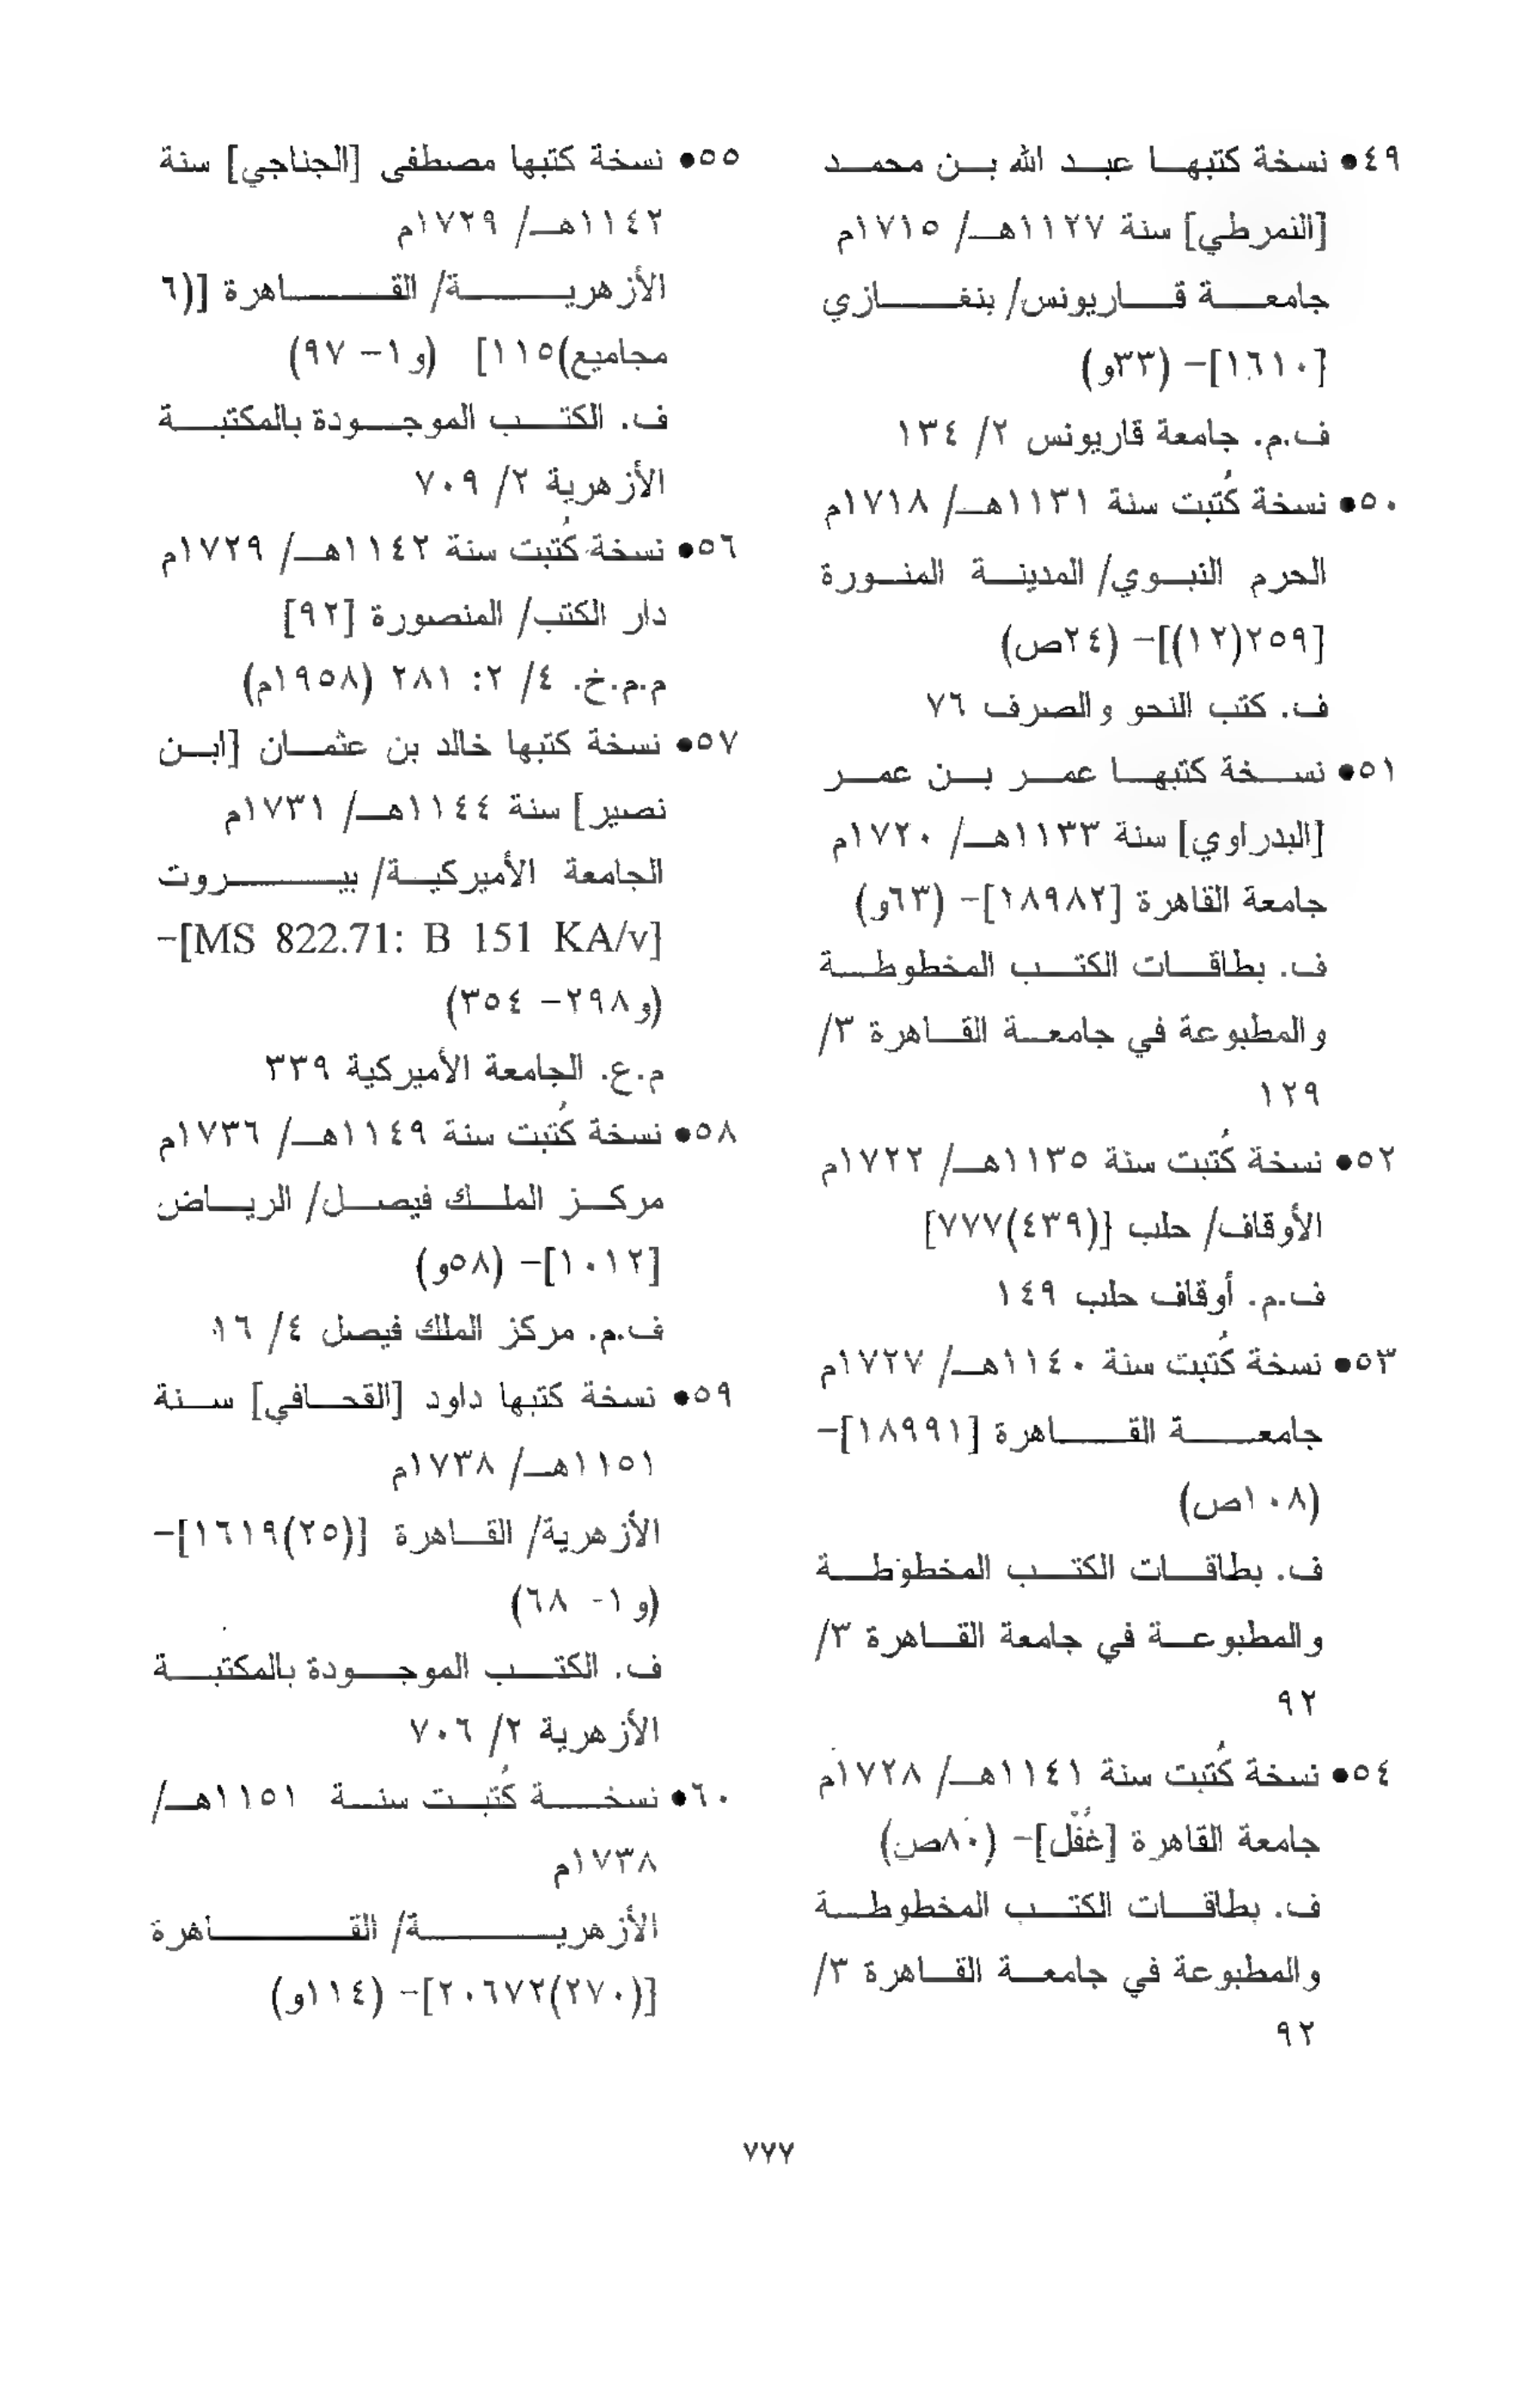 ٤٩● نسخة كتبها عبد الله بن محمد
[النمرطي] سنة ١١٢٧هـ/ ١٧١٥م
جامعة قاريونس/ بنغازي
[١٦١٠]- (٣٣و)
ف.م. جامعة قاريونس ٢/ ١٣٤
٥٠● نسخة كُتبت سنة ١١٣١هـ/ ١٧١٨م
الحرم النبوي/ المدينة المنورة
[٢٥٩(١٢)]- (٢٤ص)
ف. كتب النحو والصرف ٧٦
٥١● نسخة كتبها عمر بن عمر
[البدراوي] سنة ١١٣٣هـ/ ١٧٢٠م
جامعة القاهرة [١٨٩٨٢]- (٦٣و)
ف. بطاقات الكتب المخطوطة
والمطبوعة في جامعة القاهرة ٣/
١٢٩
٥٢● نسخة كُتبت سنة ١١٣٥هـ/ ١٧٢٢م
الأوقاف/ حلب [(٤٣٩)٧٧٧]
ف.م. أوقاف حلب ١٤٩
٥٣● نسخة كُتبت سنة ١١٤٠هـ/ ١٧٢٧م
جامعة القاهرة [١٨٩٩١]-
(١٠٨ص)
ف. بطاقات الكتب المخطوطة
والمطبوعة في جامعة القاهرة ٣/
٩٢
٥٤● نسخة كُتبت سنة ١١٤١هـ/ ١٧٢٨م
جامعة القاهرة [غُفْل]- (٨٠ص)
ف. بطاقات الكتب المخطوطة
والمطبوعة في جامعة القاهرة ٣/
٩٢
٥٥● نسخة كتبها مصطفى [الجناجي] سنة
١١٤٢هـ/ ١٧٢٩م
الأزهرية/ القاهرة [(٦
مجاميع)١١٥] (و١- ٩٧)
ف. الكتب الموجودة بالمكتبة
الأزهرية ٢/ ٧٠٩
٥٦● نسخة كُتبت سنة ١١٤٢هـ/ ١٧٢٩م
دار الكتب/ المنصورة [٩٢]
م.م.خ. ٤/ ٢: ٢٨١ (١٩٥٨م)
٥٧● نسخة كتبها خالد بن عثمان [ابن
نصير] سنة ١١٤٤هـ/ ١٧٣١م
الجامعة الأميركية/ بيروت
[MS 822.71: B 151 KA/v]-
(و٢٩٨- ٣٥٤)
م.ع. الجامعة الأميركية ٣٣٩
٥٨● نسخة كُتبت سنة ١١٤٩هـ/ ١٧٣٦م
مركز الملك فيصل/ الرياض
[١٠١٢]- (٥٨و)
ف.م. مركز الملك فيصل ٤/ ١٦
٥٩● نسخة كتبها داود [القحافي] سنة
١١٥١هـ/ ١٧٣٨م
الأزهرية/ القاهرة [(٢٥)١٦١٩]-
(و١- ٦٨)
ف. الكتب الموجودة بالمكتبة
الأزهرية ٢/ ٧٠٦
٦٠● نسخة كُتبت سنة ١١٥١هـ/
١٧٣٨م
الأزهرية/ القاهرة
[(٢٧٠)٢٠٦٧٢]- (١١٤و)
٧٧٧